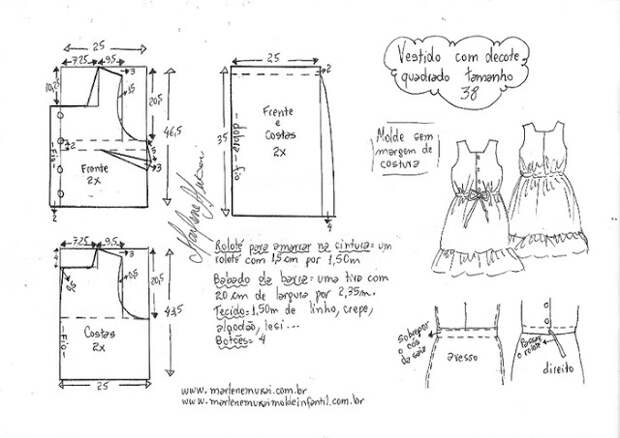 25
7,25
9,5
3
10,25
15
20,5
46,5
2
5
3
Frente
2x
2
25
2
35
Frente
e
Costas
2x
dobra - fio
4
Vestido com decote
quadrado tamanho
38
Molde sem
margem de
costura
25
7,25
9,5
3
20,5
43,5
Fio
Costas
2x
25
Roloté para amarrar na cintura = um
roloté com 1,5 cm por 1,50m
Babado da barra = uma tira com
20 cm de largura por 2,35m.
Tecido: 1,50m de linho, crepe,
algodão, lesi...
Botões= 4
sobrepor
o cós
da saia
avesso
Passar
o roloté
direito
www.marlenemukai.com.br
www.marlenemukaimoldeinfantil.com.br